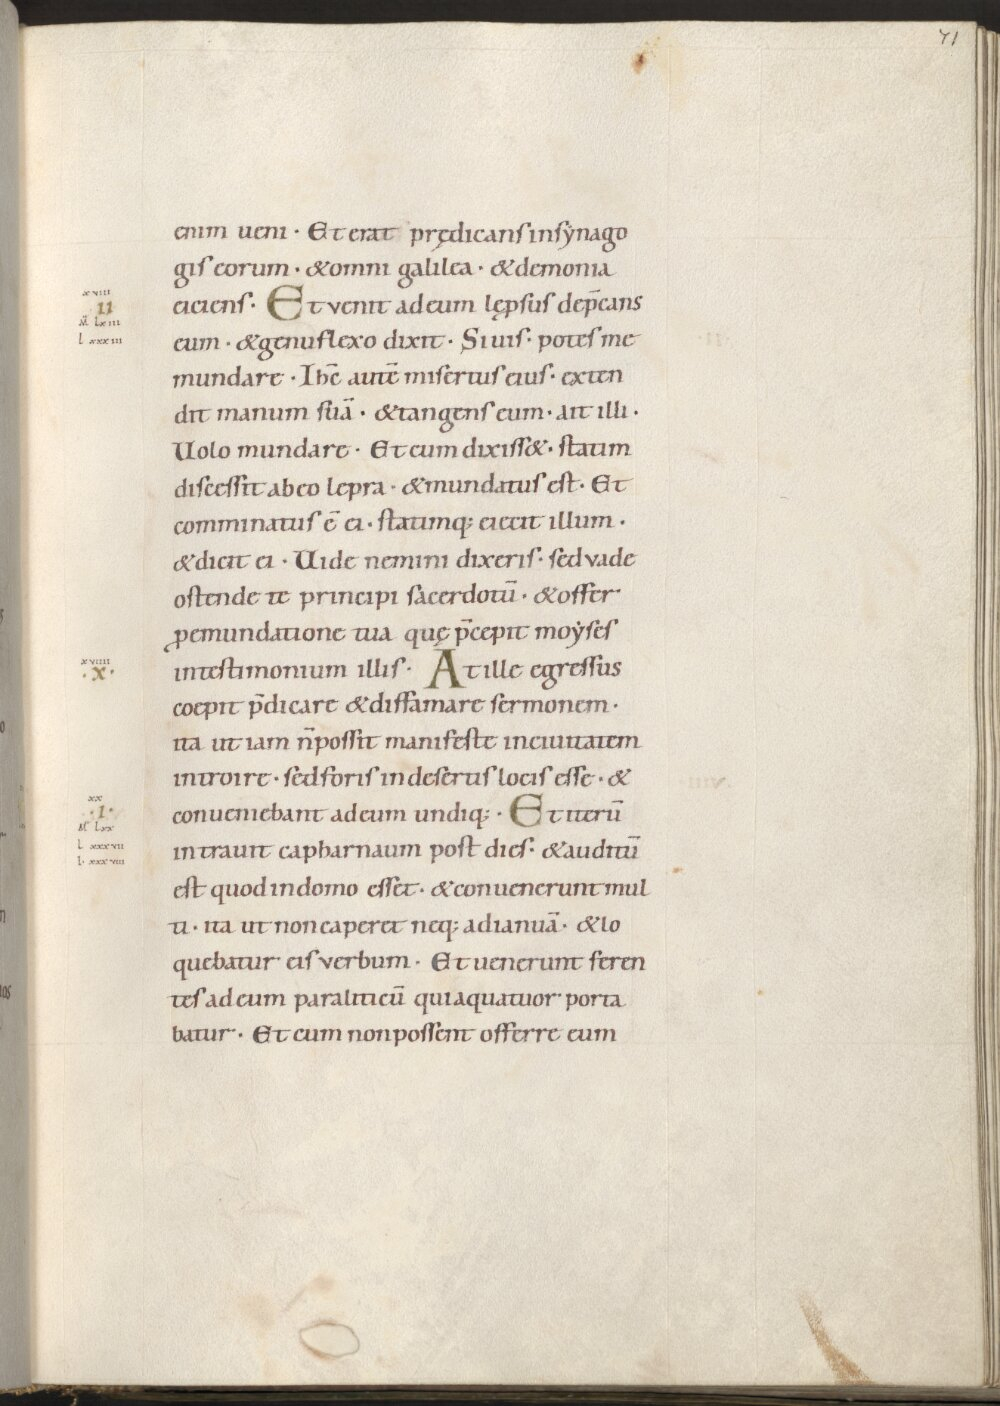 71
enim ueni · Et erat prędicans in sẏnago
gis eorum · & omni galilea · & demonia
xviii
eiciens · Et venit ad eum lępsus dep̄cans
ii
M̄ lxiii
eum · & genu flexo dixit · Si uis · potes me
l xxxiii
mundare · Ihc̄ autē misertus eius · exten
dit manum suā · & tangens eum · ait illi ·
Uolo mundare · Et cum dixiss& · statim
discessit ab eo lepra · & mundatus est · Et
comminatus ē ei · statimq; eiecit illum ·
& dicit ei · Uide nemini dixeris · sed vade
ostende te principi sacerdotū · & offer
ꝓ emundatione tua quę p̄cepit moẏses
xviiii
in testimonium illis · At ille egressus
· x ·
coepit p̄dicare & diffamare sermonem ·
ita ut iam n̄ possit manifeste in ciuitatem
introire · sed foris in desertis locis esse · &
xx
conueniebant ad eum undiq; · Et iterū
· i ·
M̄ lxx
intrauit capharnaum post dies · & auditū
l xxxvii
l · xxxviii
est quod in domo esset · & conuenerunt mul
ti · ita ut non caperet neq; ad ianuā · & lo
quebatur eis verbum · Et uenerunt feren
tes ad eum paraliticū qui a quatuor porta
batur · Et cum non possent offerre eum